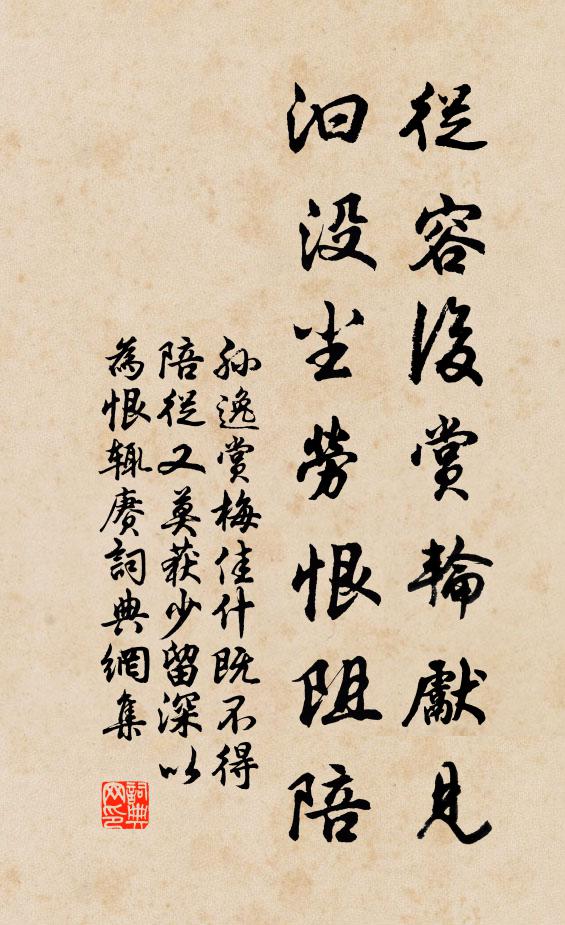 從容後賞輪獻見
汩没尘勞恨阻陪
孙逸賞梅佳什既不得
陪從又莫获少留深以
為恨輒赓詞典網集
詞典网印